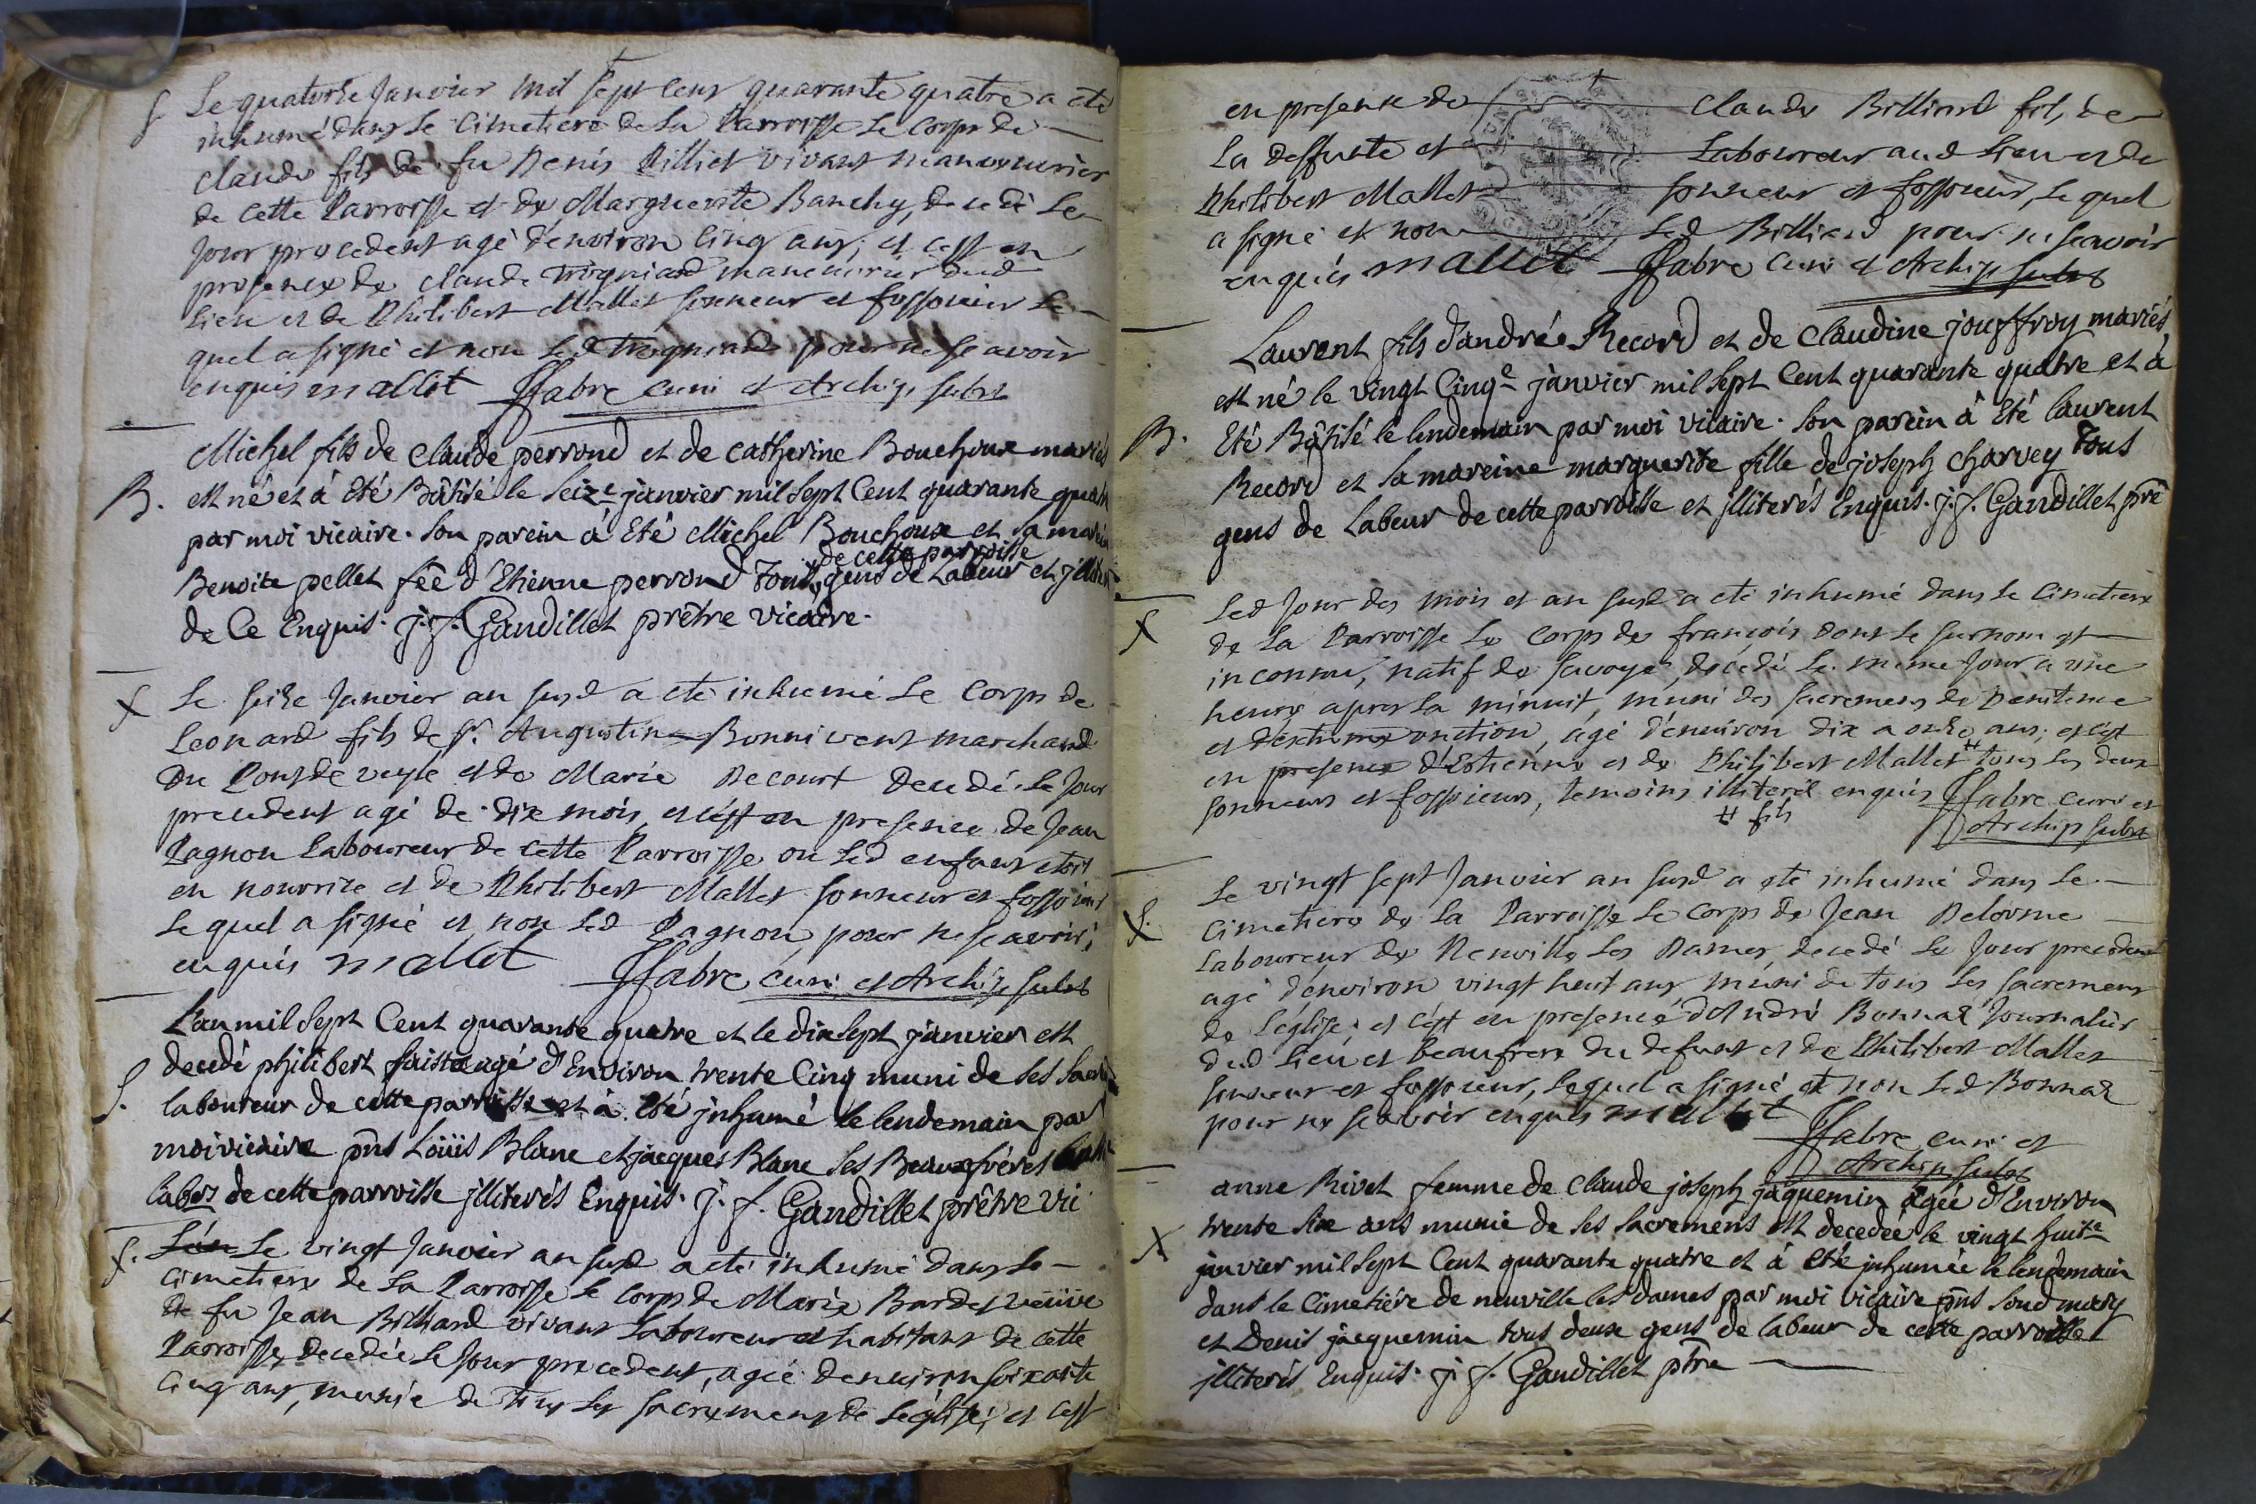 S. Le quatorze Janvier mil sept cens quarante quatre a été
inhumé dans le cimetiere de la Parroisse le corps de
claude fils de fu Denis Pilliet vivant manouvrier
de cette Parroisse et de Marguerite Banchy, decedé le
jour precedent agé d'environ cinq ans; et c'est en
presence de claude trogniard manouvrier dud
Lieu et de Philibert Mallet sonneur et fossoieur le
quel a signé et non led trogniard pour ne sçavoir
enquis mallet ffabre curé et Archip subst
Michel fils de claude perroud et de catherine Bouchoux mariés
B. est né et à été Bâtisé le seize janvier mil sept Cent quarante quatre
par moi vicaire. son parein à Eté Michel Bouchoux et sa mareine
de cette parroisse
Benoite pellet fẽe d'Etienne perroud Tous gens de Labeur et jlliterés
de Ce Enquis. j. f. Gandillet prêtre vicaire.
X Le seize Janvier an susd a eté inhumé Le Corps de
Leonard fils de Sr. Augustin Bonnivent marchand
du Pont de veyle et de Marie Decourt decedé le Jour
precedent agé de dix mois, et c'est en presence de Jean
Pagnon Laboureur de cette Parroisse ou led enfant etoit
en nourrice et de Philibert Mallet sonneur et fossoieur
Lequel a signé et non led Pagnon pour ne sçavoir;
enquis mallet ffabre curé et Archip subst
L'an mil sept Cent quarante quatre et le dix sept janvier est
S. decedé philibert faiste agé d'Environ trente Cinq muni de ses sacremens
laboureur de cette parroisse et à Eté jnhumé le lendemain par
moi vicaire pñs Loüis Blanc et jacques Blanc ses Beauxfréres
labrs de cette parroisse jlliterés Enquis. j. f. Gandillet prêtre vic
S. L'an Le vingt Janvier an susd a eté inhumé dans le
cimetiere de la Parroisse le corps de Marie Bardet veüve
de fu Jean Billiard vivant Laboureur et habitant de cette
Parroisse, decedée le Jour precedent, agée d'environ soixante
cinq ans, munie de tous les sacremens de l'eglise; et c'est
en presence de Claude Billiard fils de
la deffunte et Laboureur aud Lieu et de
Philibert Mallet sonneur et fossoieur, le quel
a signé et non led Billiard pour ne sçavoir
enquis mallet ffabre curé et Archip subst
Laurent fils d'andrée Record et de claudine jouffroy mariés
est né le vingt Cinqe janvier mil sept Cent quarante quatre et à
B. Eté Bâtisé le lendemain par moi vicaire. son parein à Eté laurent
Record et sa mareine marguerite fille de joseph charvey Tous
gens de Labeur de cette parroisse et jlliterés Enquis. j. f. Gandillet prê
X Led Jour des mois et an susd a eté inhumé dans le Cimetiere
de la Parroisse le corps de françois dont le surnom est
inconnu, natif de savoye, decedé le même Jour a une
heure apres la minuit, muni des sacremens de Penitence
et d'extreme onction, agé d'environ dix a onze ans; et c'est
en presence d'Estienne et de Philibert Mallet # tous les deux
sonneurs et fossoieurs, temoins illiteré enquis ffabre curé et
# fils Archip subst
Le vingt sept Janvier an susd a eté inhumé dans le
X cimetiere de la Parroisse le corps de Jean Delorme
Laboureur de Neuville les Dames, decedé le Jour precedent
agé d'environ vingt huit ans muni de tous les sacremens
de l'église; et c'est en presence d'André Bonnaz Journalier
dud Lieu et beaufrere du defunt et de Philibert Mallet
sonneur et fossoieur, lequel a signé et non led Bonnaz
pour ne sçavoir enquis mallet ffabre curé et
Archip subst
anne Rivet femme de claude joseph jaquemin agée d'Environ
X trente six ans munie de ses sacremens est decedée le vingt huite
janvier mil sept Cent quarante quatre et à Eté jnhumée le lendemain
dans le Cimetiére de neuville les dames par moi vicaire pñs soud mary
et Denis jacquemin tous deux gens de labeur de cette parroisse
jlliterés Enquis. j. f. Gandillet ptre